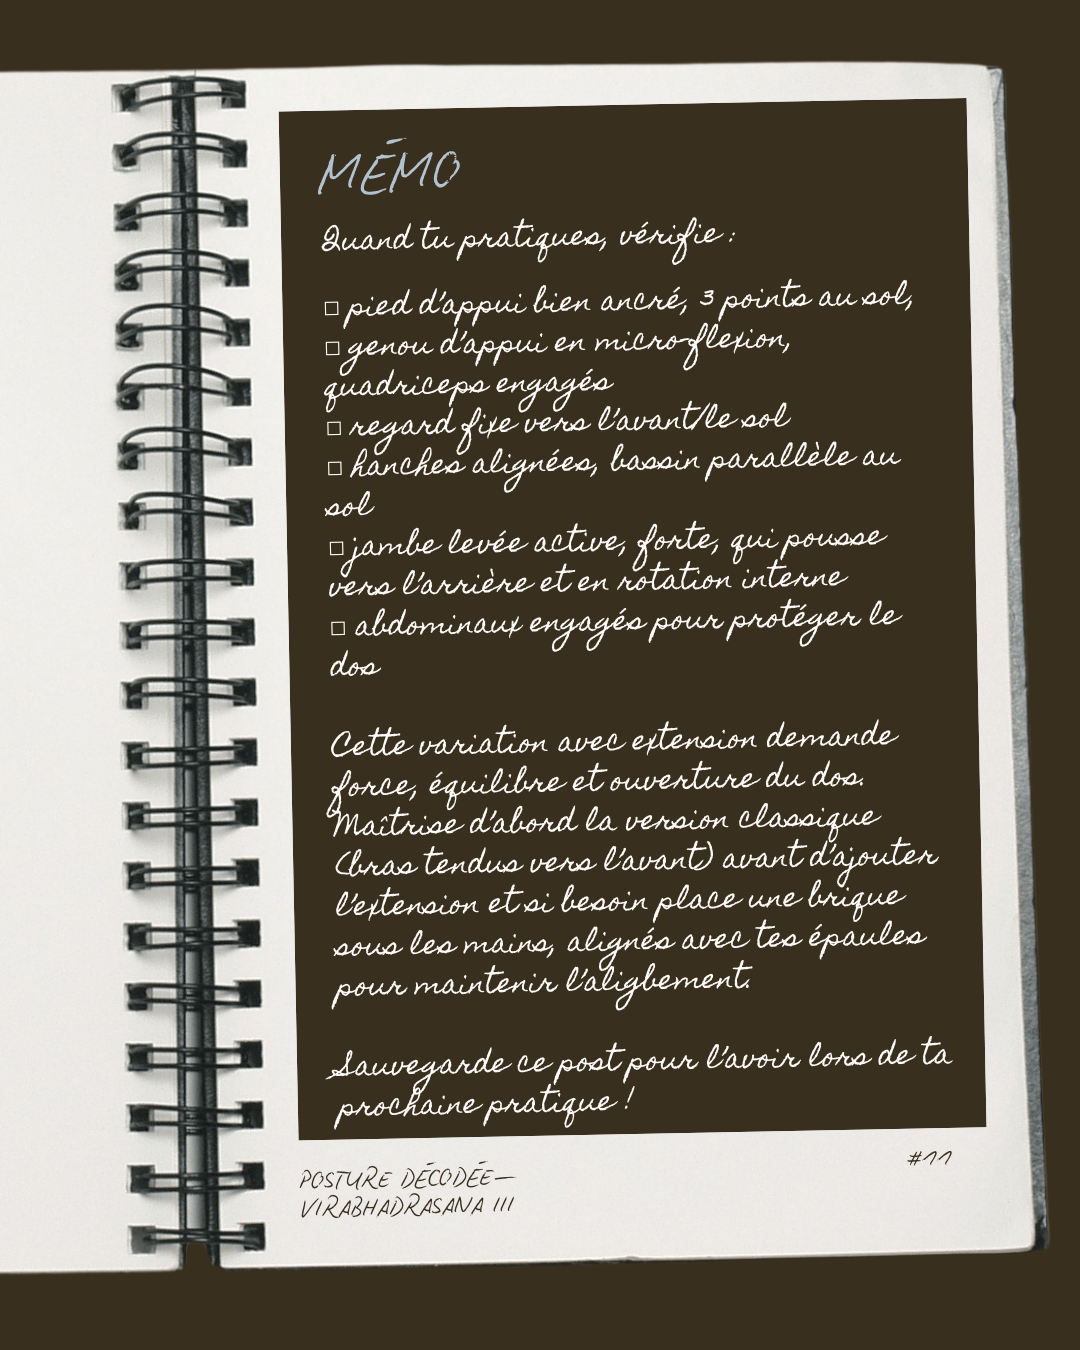 MÉMO
Quand tu pratiques, vérifie :
□ pied d'appui bien ancré, 3 points au sol,
□ genou d'appui en micro-flexion,
quadriceps engagés
□ regard fixe vers l'avant/le sol
□ hanches alignées, bassin parallèle au
sol
□ jambe levée active, forte, qui pousse
vers l'arrière et en rotation interne
□ abdominaux engagés pour protéger le
dos
Cette variation avec extension demande
force, équilibre et ouverture du dos.
Maîtrise d'abord la version classique
(bras tendus vers l'avant) avant d'ajouter
l'extension et si besoin place une brique
sous les mains, alignés avec tes épaules
pour maintenir l'aligbement.
Sauvegarde ce post pour l'avoir lors de ta
prochaine pratique !
#11
POSTURE DÉCODÉE—
VIRABHADRASANA III